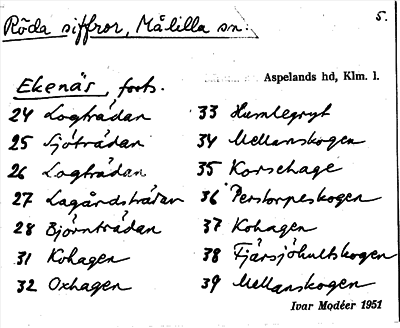 5.
Röda siffror, Målilla sn.
Aspelands hd, Klm. l.
Ekenäs, forts.
24 Logträdan
25 Sjöträdan
26 Logträdan
27 Lagårdsträdan
28 Björnträdan
31 Kohagen
32 Oxhagen
33 Humlegryt
34 Mellanskogen
35 Korsehage
36 Perstorpeskogen
37 Kohagen
38 Fjärsjöhultskogen
39 Mellanskogen
Ivar Modéer 1951